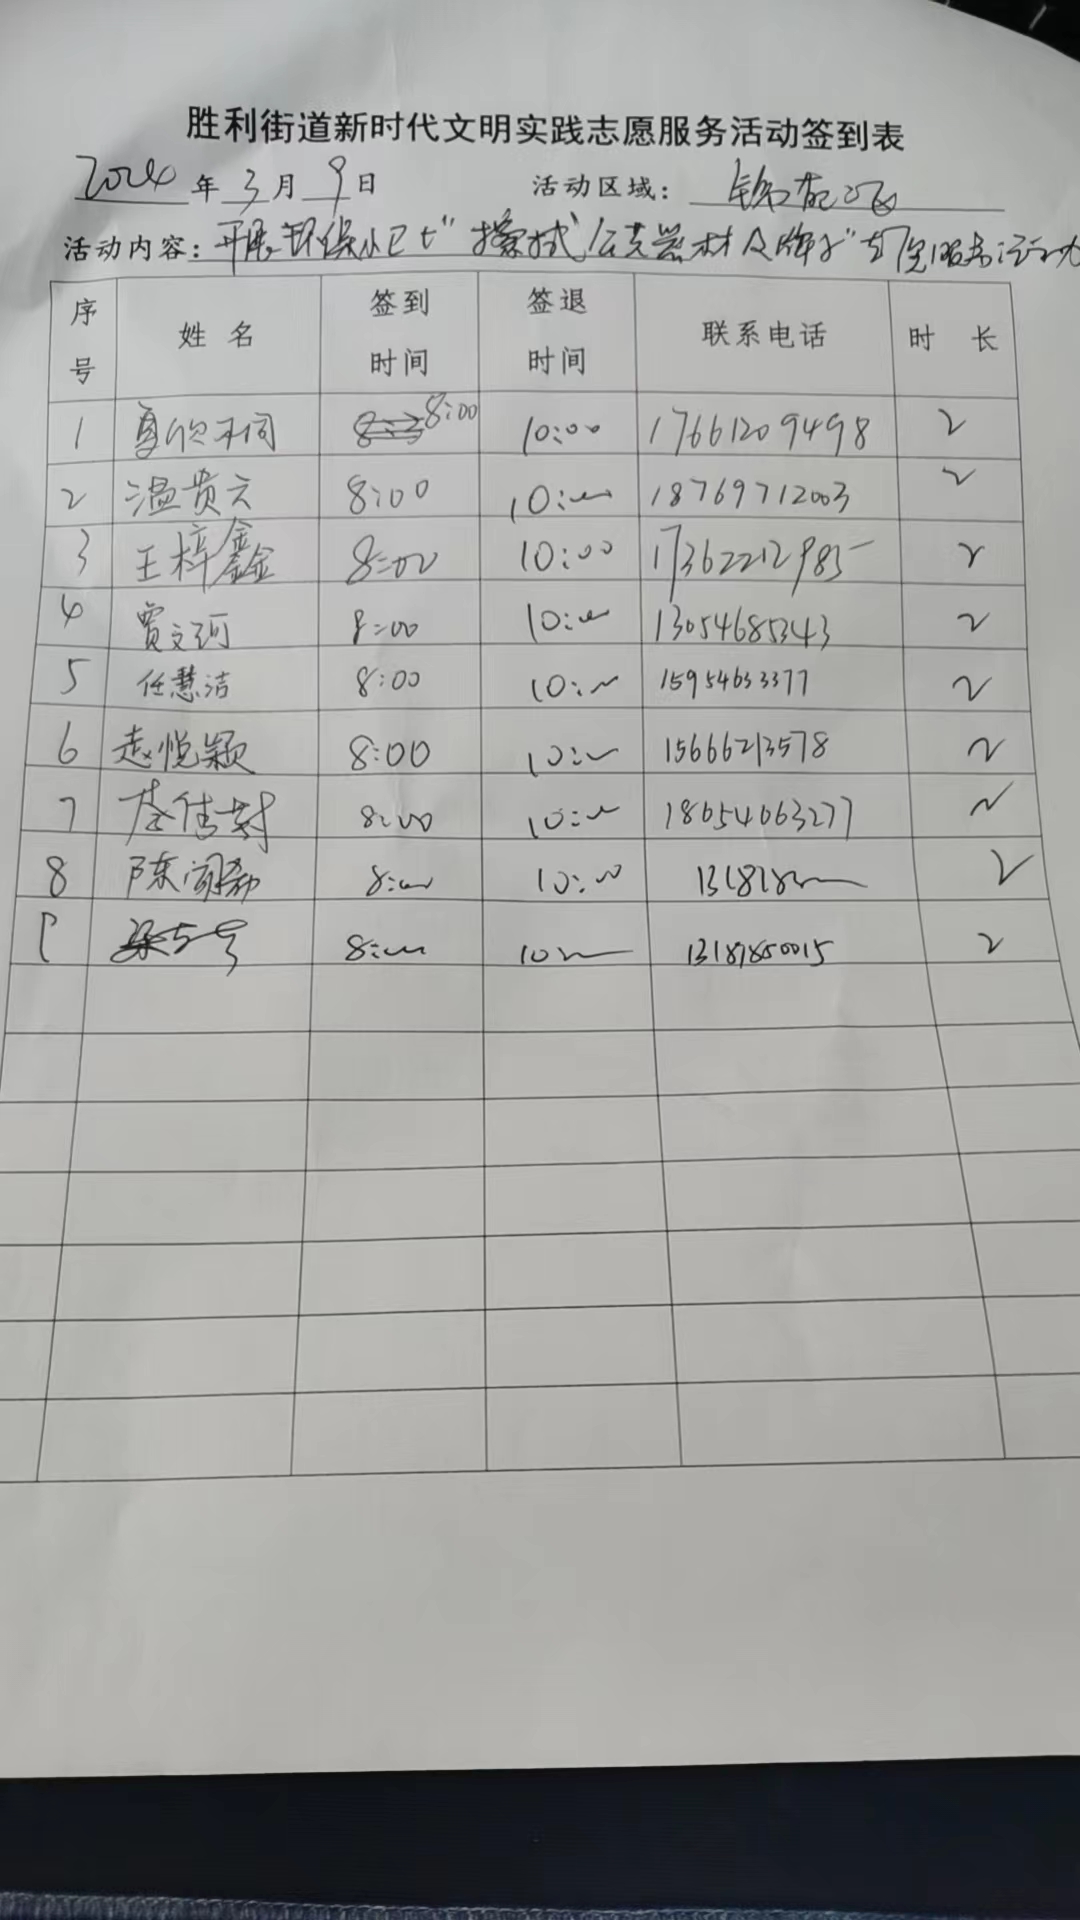 胜利街道新时代文明实践志愿服务活动签到表
2024年3月9日 活动区域：锦苑二区
活动内容：开展环保小卫士"擦拭公共器材及牌子"志愿服务活动
序号 姓名 签到时间 签退时间 联系电话 时长
1 8:00 10:00 17661209498 2
2 温贵云 8:00 10:00 18769712003 2
3 王梓鑫 8:00 10:00 17362212985 2
4 贾文珂 8:00 10:00 13054685343 2
5 任慧洁 8:00 10:00 15954633377 2
6 赵悦颖 8:00 10:00 15666213578 2
7 8:00 10:00 18654063277 2
8 8:00 10:00 2
9 8:00 10:00 13181850015 2